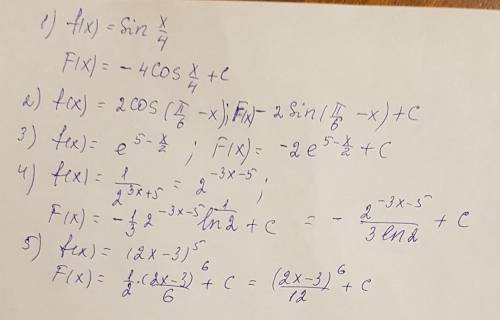 1) f(x) = Sin x/4
F(x) = - 4cos x/4 + C
2) f(x) = 2cos(π/6 - x); F(x) - 2 Sin(π/6 - x) + C
3) f(x) = e^(5 - x/2) ; F(x) = -2e^(5 - x/2) + C
4) f(x) = 1/2^(3x+5) = 2^(-3x-5) ;
F(x) = - 1/3 2^(-3x-5) 1/ln2 + C = - 2^(-3x-5)/3 ln2 + C
5) f(x) = (2x-3)^5
F(x) = 1/2 · (2x-3)^6/6 + C = (2x-3)^6/12 + C